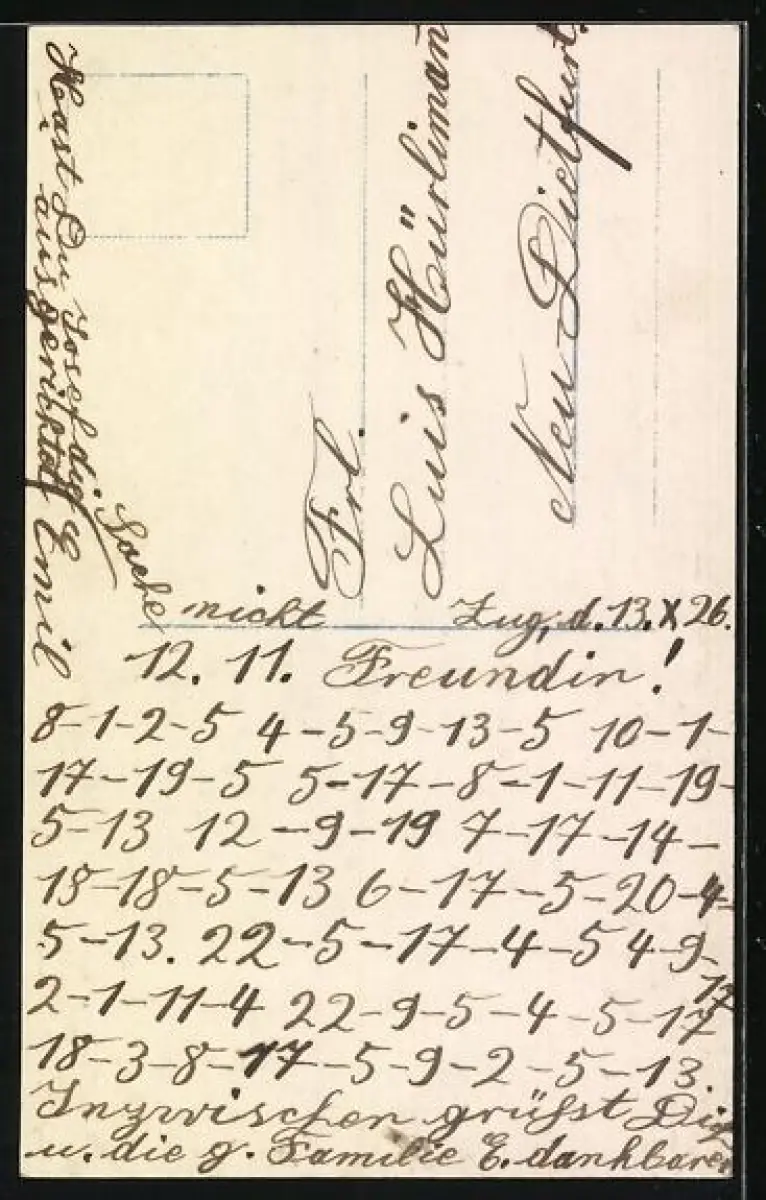 Frl.
Luis Hürlimann
Neu Dietfurt.
Zug, d. 13. X 26.
12. 11. Freundin!
8-1-2-5 4-5-9-13-5 10-1-
17-19-5 5-17-8-1-11-19-
5-13 12-9-19 7-17-14-
18-18-5-13 6-17-5-20-4-
5-13. 22-5-17-4-5 4-9-
2-1-11-4 22-9-5-4-5-17
18-3-8-17-5-9-2-5-13.
Inzwischen grüsst Dich
u. die g. Familie E. dankbarer
Emil
Hast Du Josef die Sache nicht
ausgerichtet